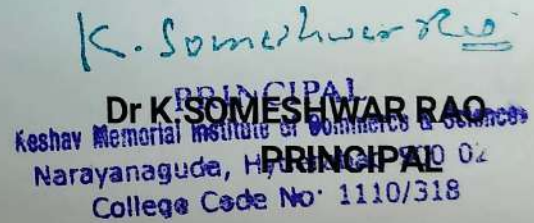 K. Someshwar Rao
PRINCIPAL
Dr K.SOMESHWAR RAO
Keshav Memorial Institute of Commerce & Sciences
PRINCIPAL
Narayanaguda,
College Code No. 1110/318